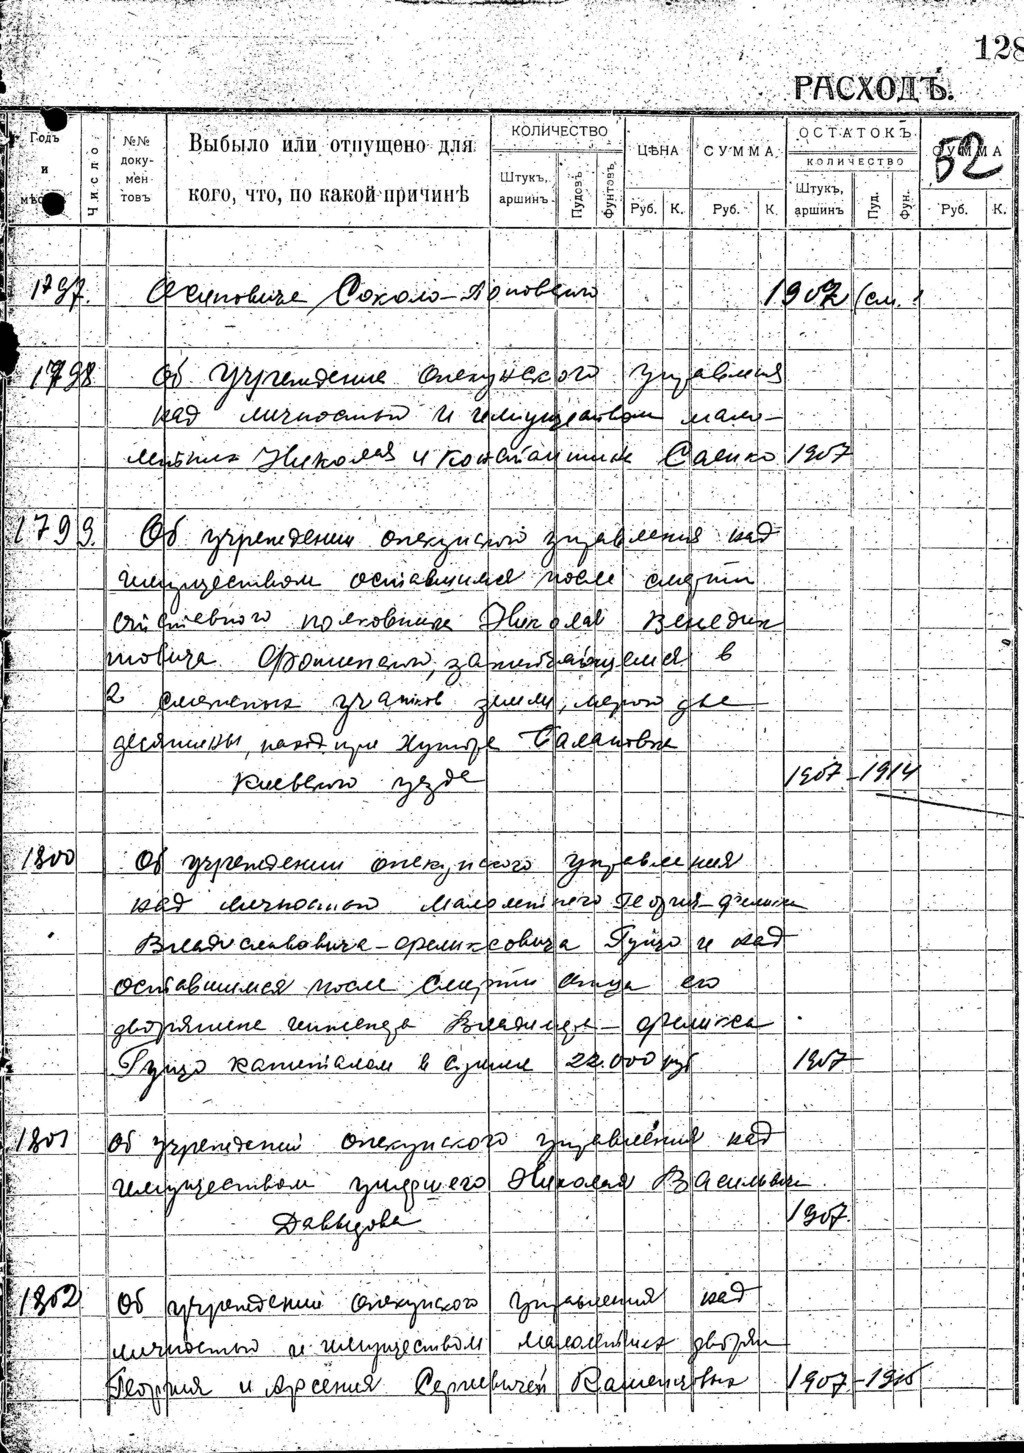 128
РАСХОДЪ.
Годъ и мѣс
Число
№№ доку- мен- товъ
Выбыло или отпущено для
кого, что, по какой причинѣ
КОЛИЧЕСТВО
Штукъ, аршинъ.
Пудовъ
Фунтовъ
ЦѢНА
Руб. К.
СУММА
Руб. К.
ОСТАТОКЪ
КОЛИЧЕСТВО
Штукъ, аршинъ
Пуд.
Фун.
СУММА
Руб. К.
52
1797. Осиповича Соколо- 1907 (см.
1798 Об учреждение опекунского управления
над личностью и имуществом мало-
летних Николая и Константина Саенко 1907
1799. Об учреждении опекунского управления над
имуществом оставшимся после смерти
отставного полковника Николая Венедик
товича заключающемся в
2 смежных участков земли, мерою две
десятины, наход при Хуторе
Киевского уезде 1907-1914
1800 Об учреждении опекунского управления
над личностью малолетнего Георгия-Феликса
Владиславовича-Феликсовича и над
оставшимся после смерти отца его
дворянина Феликса
капиталом в сумме 22.000 руб 1907
1801 Об учреждении опекунского управления над
имуществом умершего Николая Васильевича
Давыдова 1907.
1802 Об учреждении опекунского управления над
личностью и имуществом малолетних дворян
Георгия и Арсения Сергеевичей 1907-1915